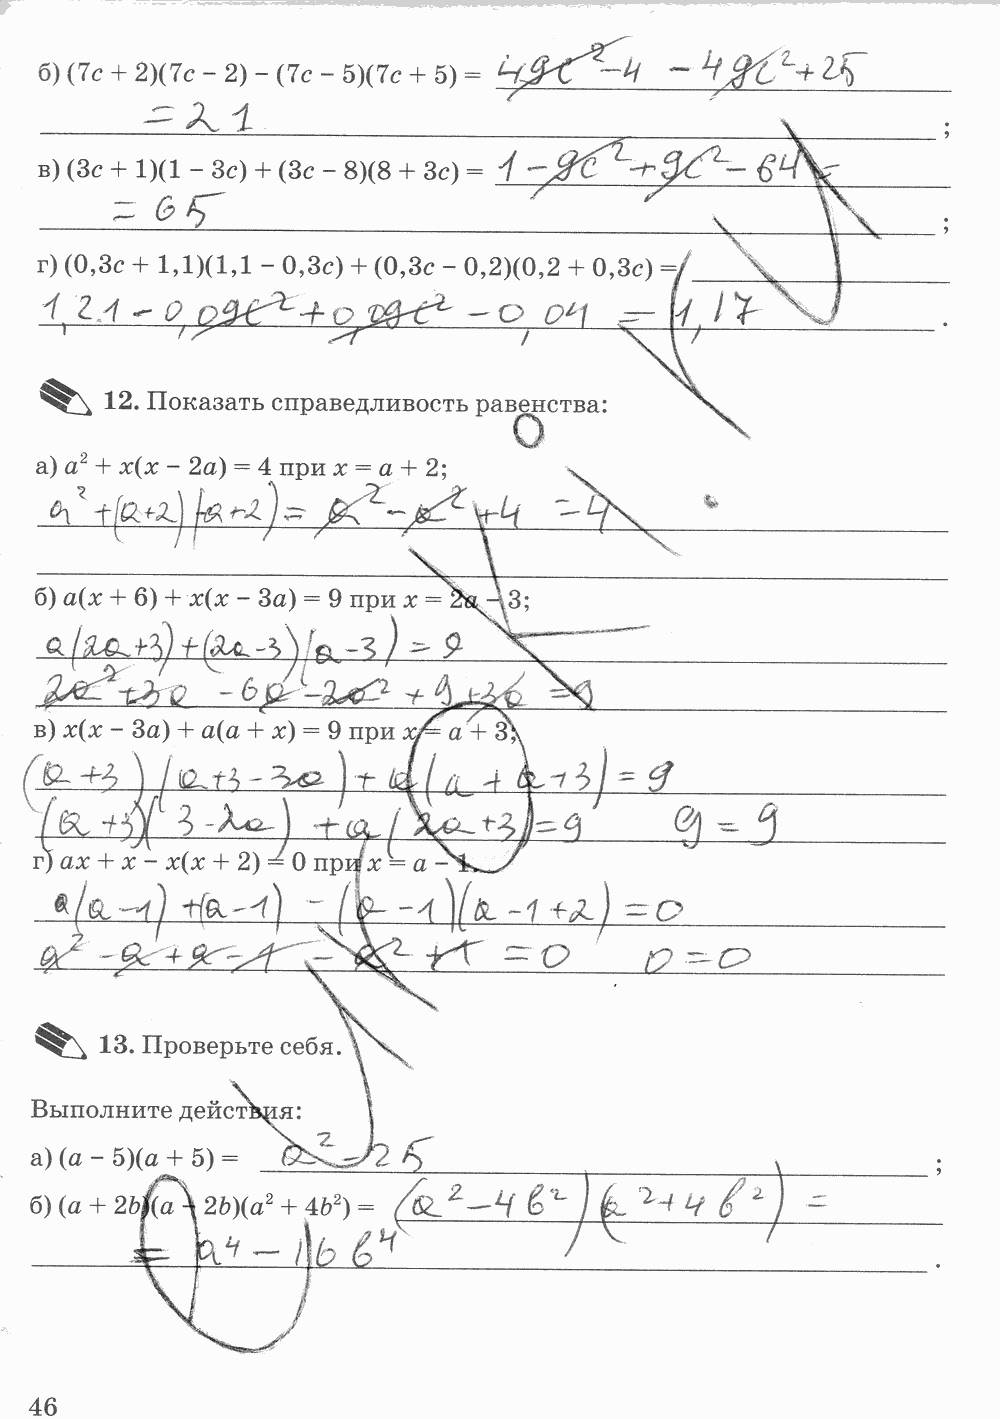 б) (7c + 2)(7c − 2) − (7c − 5)(7c + 5) = 49c² − 4 − 49c² + 25
= 21 ;
в) (3c + 1)(1 − 3c) + (3c − 8)(8 + 3c) = 1 − 9c² + 9c² − 64 =
= 65 ;
г) (0,3c + 1,1)(1,1 − 0,3c) + (0,3c − 0,2)(0,2 + 0,3c) =
1,21 − 0,09c² + 0,09c² − 0,04 = 1,17 .
12. Показать справедливость равенства:
а) a² + x(x − 2a) = 4 при x = a + 2;
a² + (a+2)(-a+2) = a² − a² + 4 = 4
б) a(x + 6) + x(x − 3a) = 9 при x = 2a − 3;
a(2a+3) + (2a−3)(a−3) = 9
2a² + 3a − 6a − 2a² + 9 + 3a = 9
в) x(x − 3a) + a(a + x) = 9 при x = a + 3;
(a+3)(a+3−3a) + a(a + a+3) = 9
(a+3)(3−2a) + a(2a+3) = 9 9 = 9
г) ax + x − x(x + 2) = 0 при x = a − 1.
a(a−1) + (a−1) − (a−1)(a−1+2) = 0
a² − a + a − 1 − a² + 1 = 0 0 = 0
13. Проверьте себя.
Выполните действия:
а) (a − 5)(a + 5) = a² − 25 ;
б) (a + 2b)(a − 2b)(a² + 4b²) = (a² − 4b²)(a² + 4b²) =
= a⁴ − 16b⁴ .
46